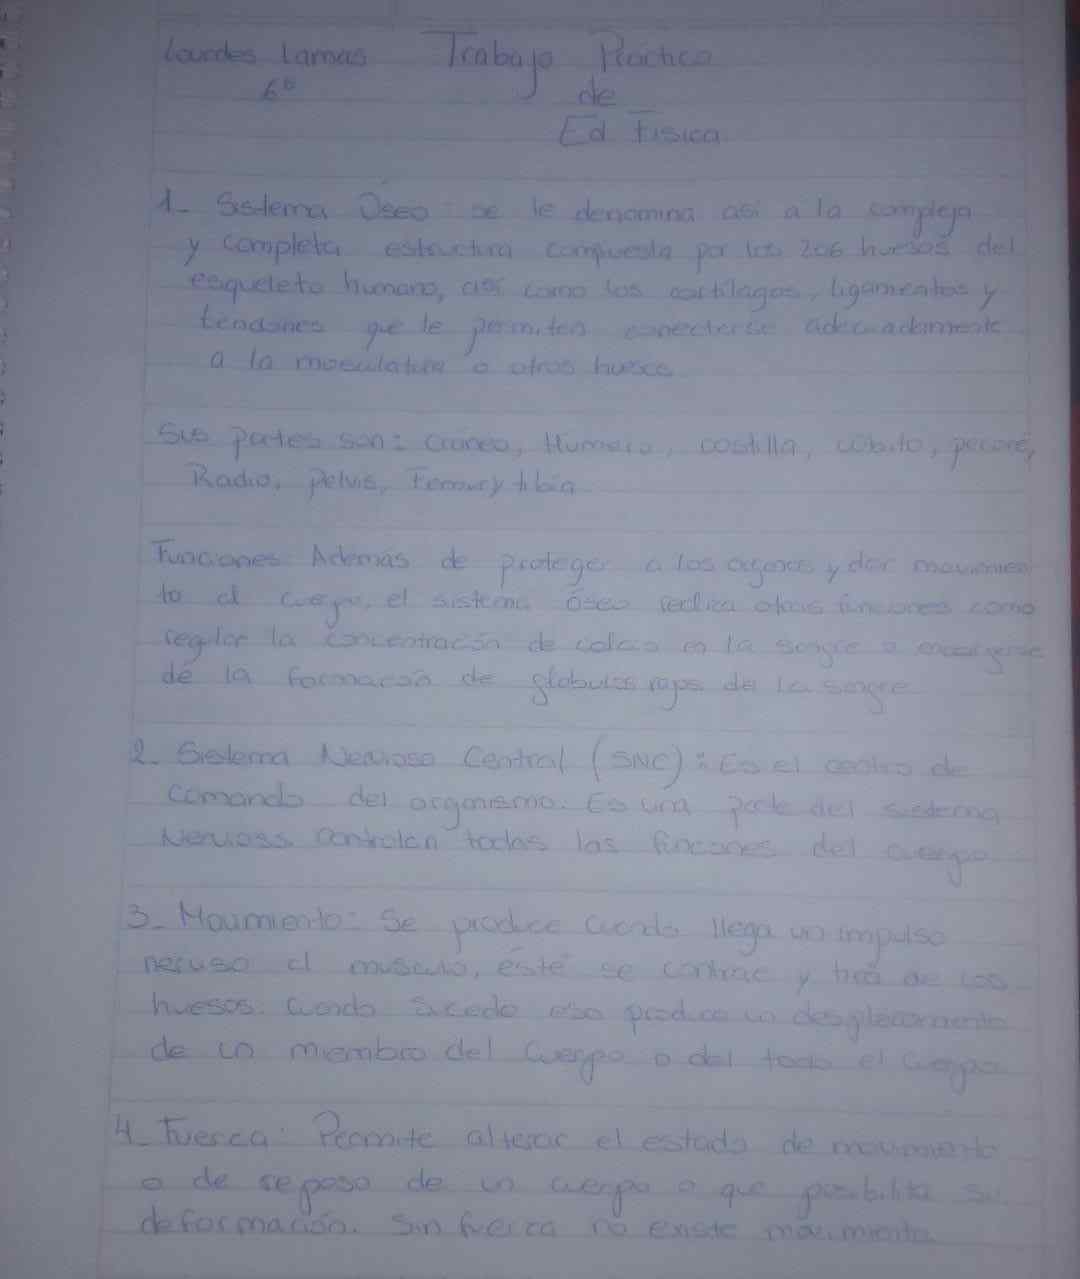 Lourdes Lamas Trabajo Práctico
6° de
Ed Fisica
1_ Sistema Óseo: se le denomina así a la compleja
y completa estructura compuesta por los 206 huesos del
esqueleto humano, así como los cartílagos, ligamentos y
tendones que le permiten conecterse adecuadamente
a la musculatura o otros huesos
Sus partes son: Cráneo, Humero, costilla, cúbito, peroné,
Radio, Pelvis, Femur y tibia
Funciones: Además de proteger a los organos y dar movimien
to al cuerpo, el sistema óseo realiza otras funciones como
regular la concentración de calcio en la sangre o encargarse
de la formación de globulos rojos de la sangre
2_ Sistema Nervioso Central (SNC): Es el centro de
comando del organismo. Es una parte del sistema
Nervioso controlan todas las funciones del cuerpo
3_ Movimiento: Se produce cuando llega un impulso
nervioso al musculo, éste se contrae y tira de los
huesos. Cuando sucede eso produce un desplazamiento
de un miembro del cuerpo o del todo el cuerpo
4_ Fuerza: Permite alterar el estado de movimiento
o de reposo de un cuerpo o que posibilita su
deformación. Sin fuerza no existe movimiento